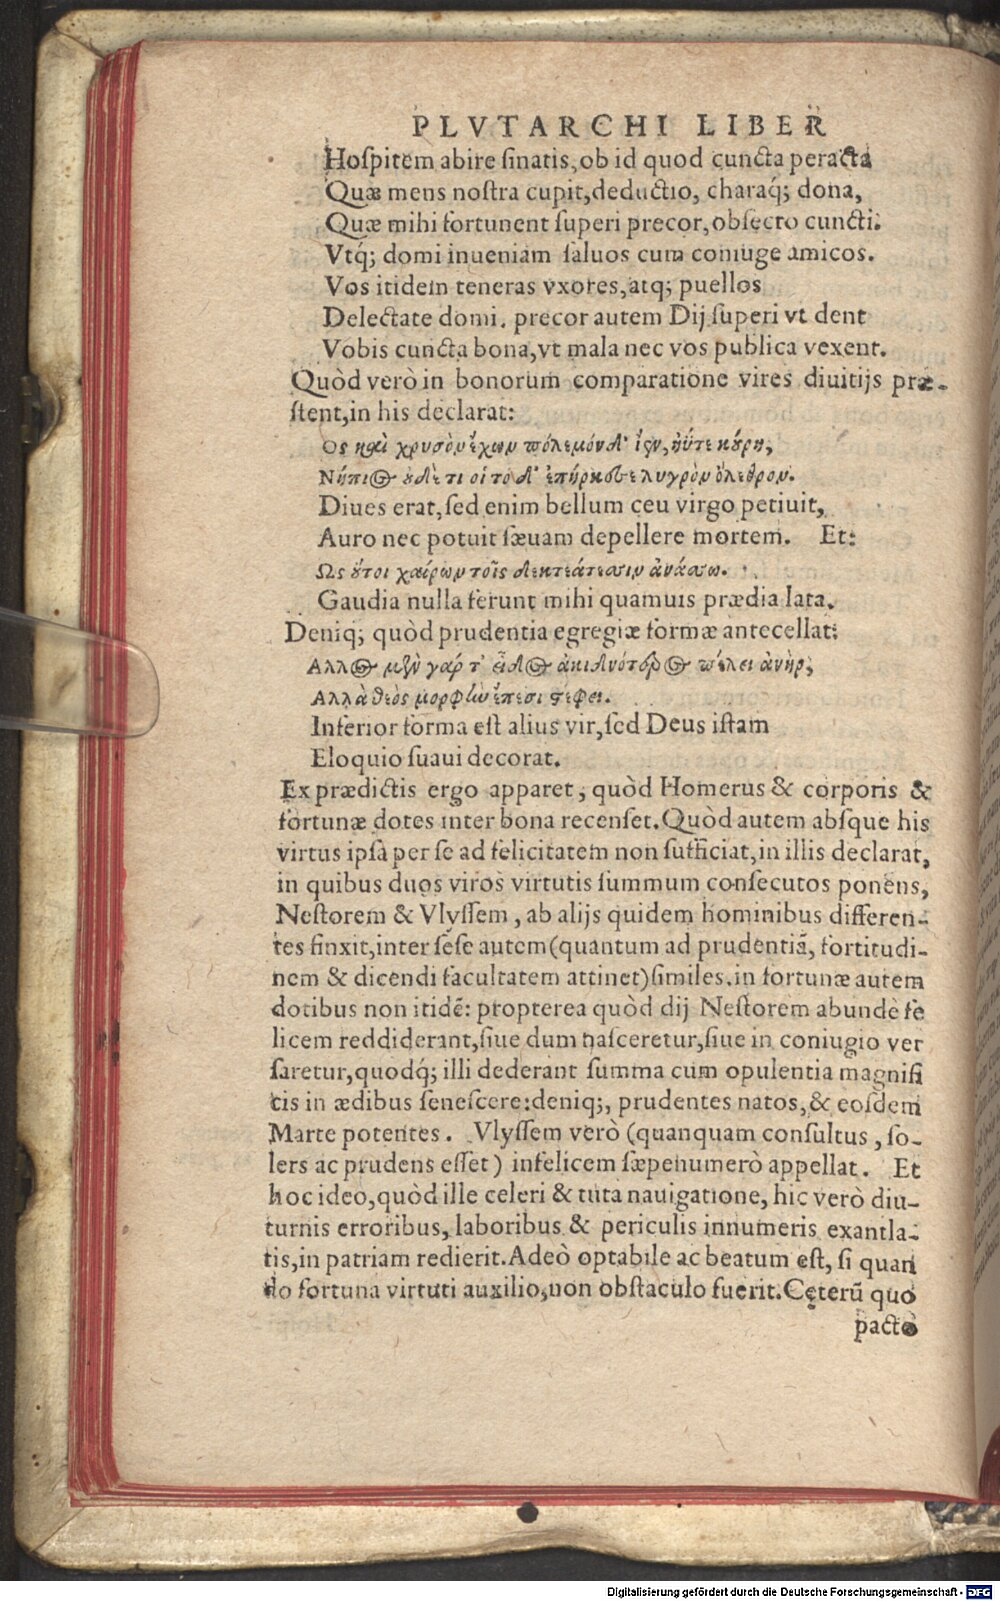 PLVTARCHI LIBER
Hoſpitem abire ſinatis, ob id quod cuncta peracta
Quæ mens noſtra cupit, deductio, charaq́; dona,
Quæ mihi fortunent ſuperi precor, obſecro cuncti.
Vtq́; domi inueniam ſaluos cum coniuge amicos.
Vos itidem teneras vxores, atq; puellos
Delectate domi. precor autem Dij ſuperi vt dent
Vobis cuncta bona, vt mala nec vos publica vexent.
Quòd verò in bonorum comparatione vires diuitijs præ-
ſtent, in his declarat:
Ὃς καὶ χρυσὸν ἔχων πόλεμόνδ' ἴεν, ἠΰτε κούρη,
Νήπιος οὐδέ τι οἱ τό δ' ἐπήρκεσε λυγρὸν ὄλεθρον.
Diues erat, ſed enim bellum ceu virgo petiuit,
Auro nec potuit ſæuam depellere mortem. Et:
Ως οὔτοι χαίρων τοῖς δεκτεάτεσσιν ἀνάσσω.
Gaudia nulla ferunt mihi quamuis prædia lata.
Deniq; quòd prudentia egregiæ formæ antecellat:
Αλλος μὲν γάρ τ' εἶδος ἀκιδνότερος πέλει ἀνὴρ,
Αλλὰ θεὸς μορφὴν ἔπεσι στέφει.
Inferior forma eſt alius vir, ſed Deus iſtam
Eloquio ſuaui decorat.
Ex prædictis ergo apparet, quòd Homerus & corporis &
fortunæ dotes inter bona recenſet. Quòd autem abſque his
virtus ipſa per ſe ad felicitatem non ſufficiat, in illis declarat,
in quibus duos viros virtutis ſummum conſecutos ponens,
Neſtorem & Vlyſſem, ab alijs quidem hominibus differen-
tes finxit, inter ſeſe autem (quantum ad prudentiã, fortitudi-
nem & dicendi facultatem attinet) ſimiles. in fortunæ autem
dotibus non itidẽ: propterea quòd dij Neſtorem abundè fe
licem reddiderant, ſiue dum naſceretur, ſiue in coniugio ver
ſaretur, quodq́; illi dederant ſumma cum opulentia magnifi
cis in ædibus ſeneſcere: deniq;, prudentes natos, & eoſdem
Marte potentes. Vlyſſem verò (quanquam conſultus, ſo-
lers ac prudens eſſet) infelicem ſæpenumerò appellat. Et
hoc ideo, quòd ille celeri & tuta nauigatione, hic verò diu-
turnis erroribus, laboribus & periculis innumeris exantla-
tis, in patriam redierit. Adeò optabile ac beatum eſt, ſi quan
do fortuna virtuti auxilio, non obſtaculo fuerit. Cęterũ quo
pacto
Digitalisierung gefördert durch die Deutsche Forschungsgemeinschaft - DFG